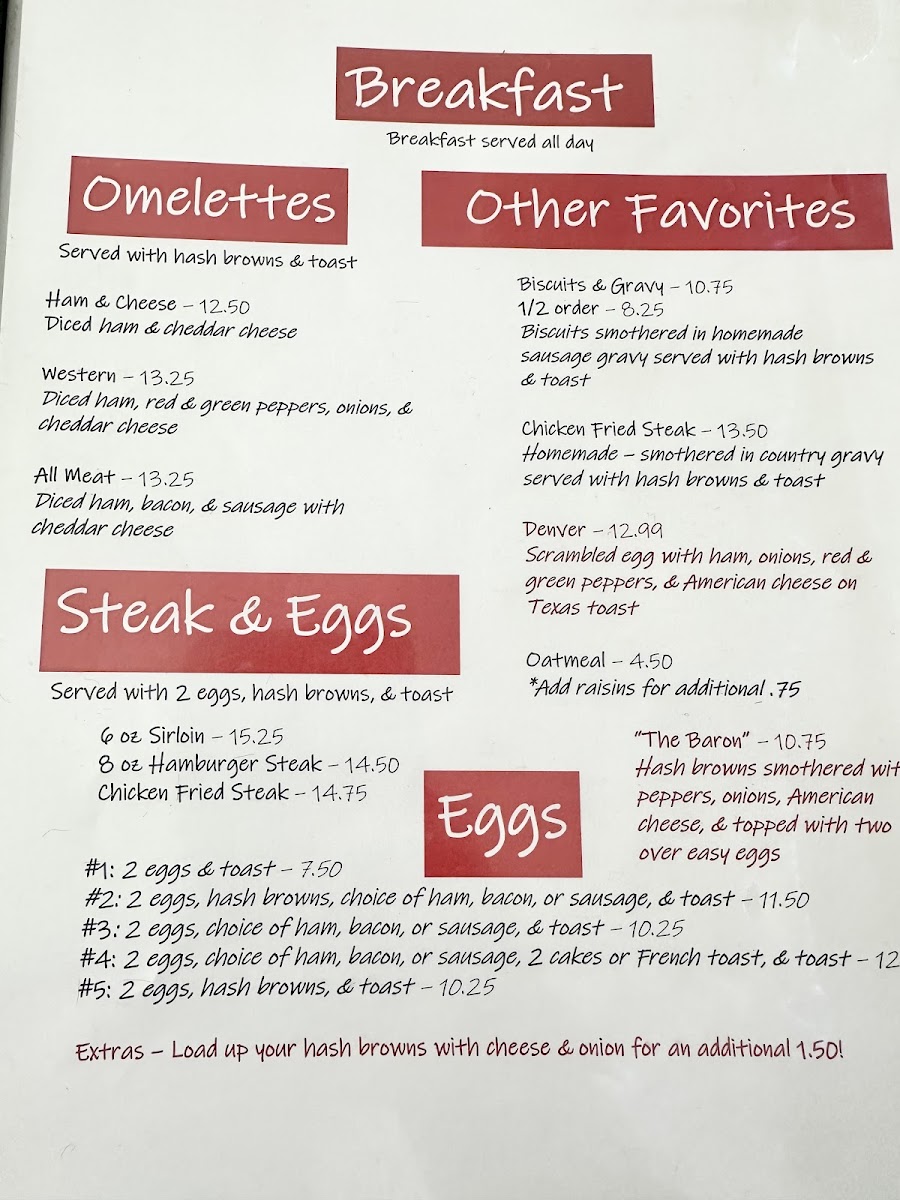 Breakfast
Breakfast served all day
Omelettes
Served with hash browns & toast
Ham & Cheese – 12.50
Diced ham & cheddar cheese
Western – 13.25
Diced ham, red & green peppers, onions, &
cheddar cheese
All Meat – 13.25
Diced ham, bacon, & sausage with
cheddar cheese
Other Favorites
Biscuits & Gravy – 10.75
1/2 order – 8.25
Biscuits smothered in homemade
sausage gravy served with hash browns
& toast
Chicken Fried Steak – 13.50
Homemade – smothered in country gravy
served with hash browns & toast
Denver – 12.99
Scrambled egg with ham, onions, red &
green peppers, & American cheese on
Texas toast
Oatmeal – 4.50
*Add raisins for additional .75
"The Baron" – 10.75
Hash browns smothered
peppers, onions, American
cheese, & topped with two
over easy eggs
Steak & Eggs
Served with 2 eggs, hash browns, & toast
6 oz Sirloin – 15.25
8 oz Hamburger Steak – 14.50
Chicken Fried Steak – 14.75
Eggs
#1: 2 eggs & toast – 7.50
#2: 2 eggs, hash browns, choice of ham, bacon, or sausage, & toast – 11.50
#3: 2 eggs, choice of ham, bacon, or sausage, & toast – 10.25
#4: 2 eggs, choice of ham, bacon, or sausage, 2 cakes or French toast, & toast – 12
#5: 2 eggs, hash browns, & toast – 10.25
Extras – Load up your hash browns with cheese & onion for an additional 1.50!